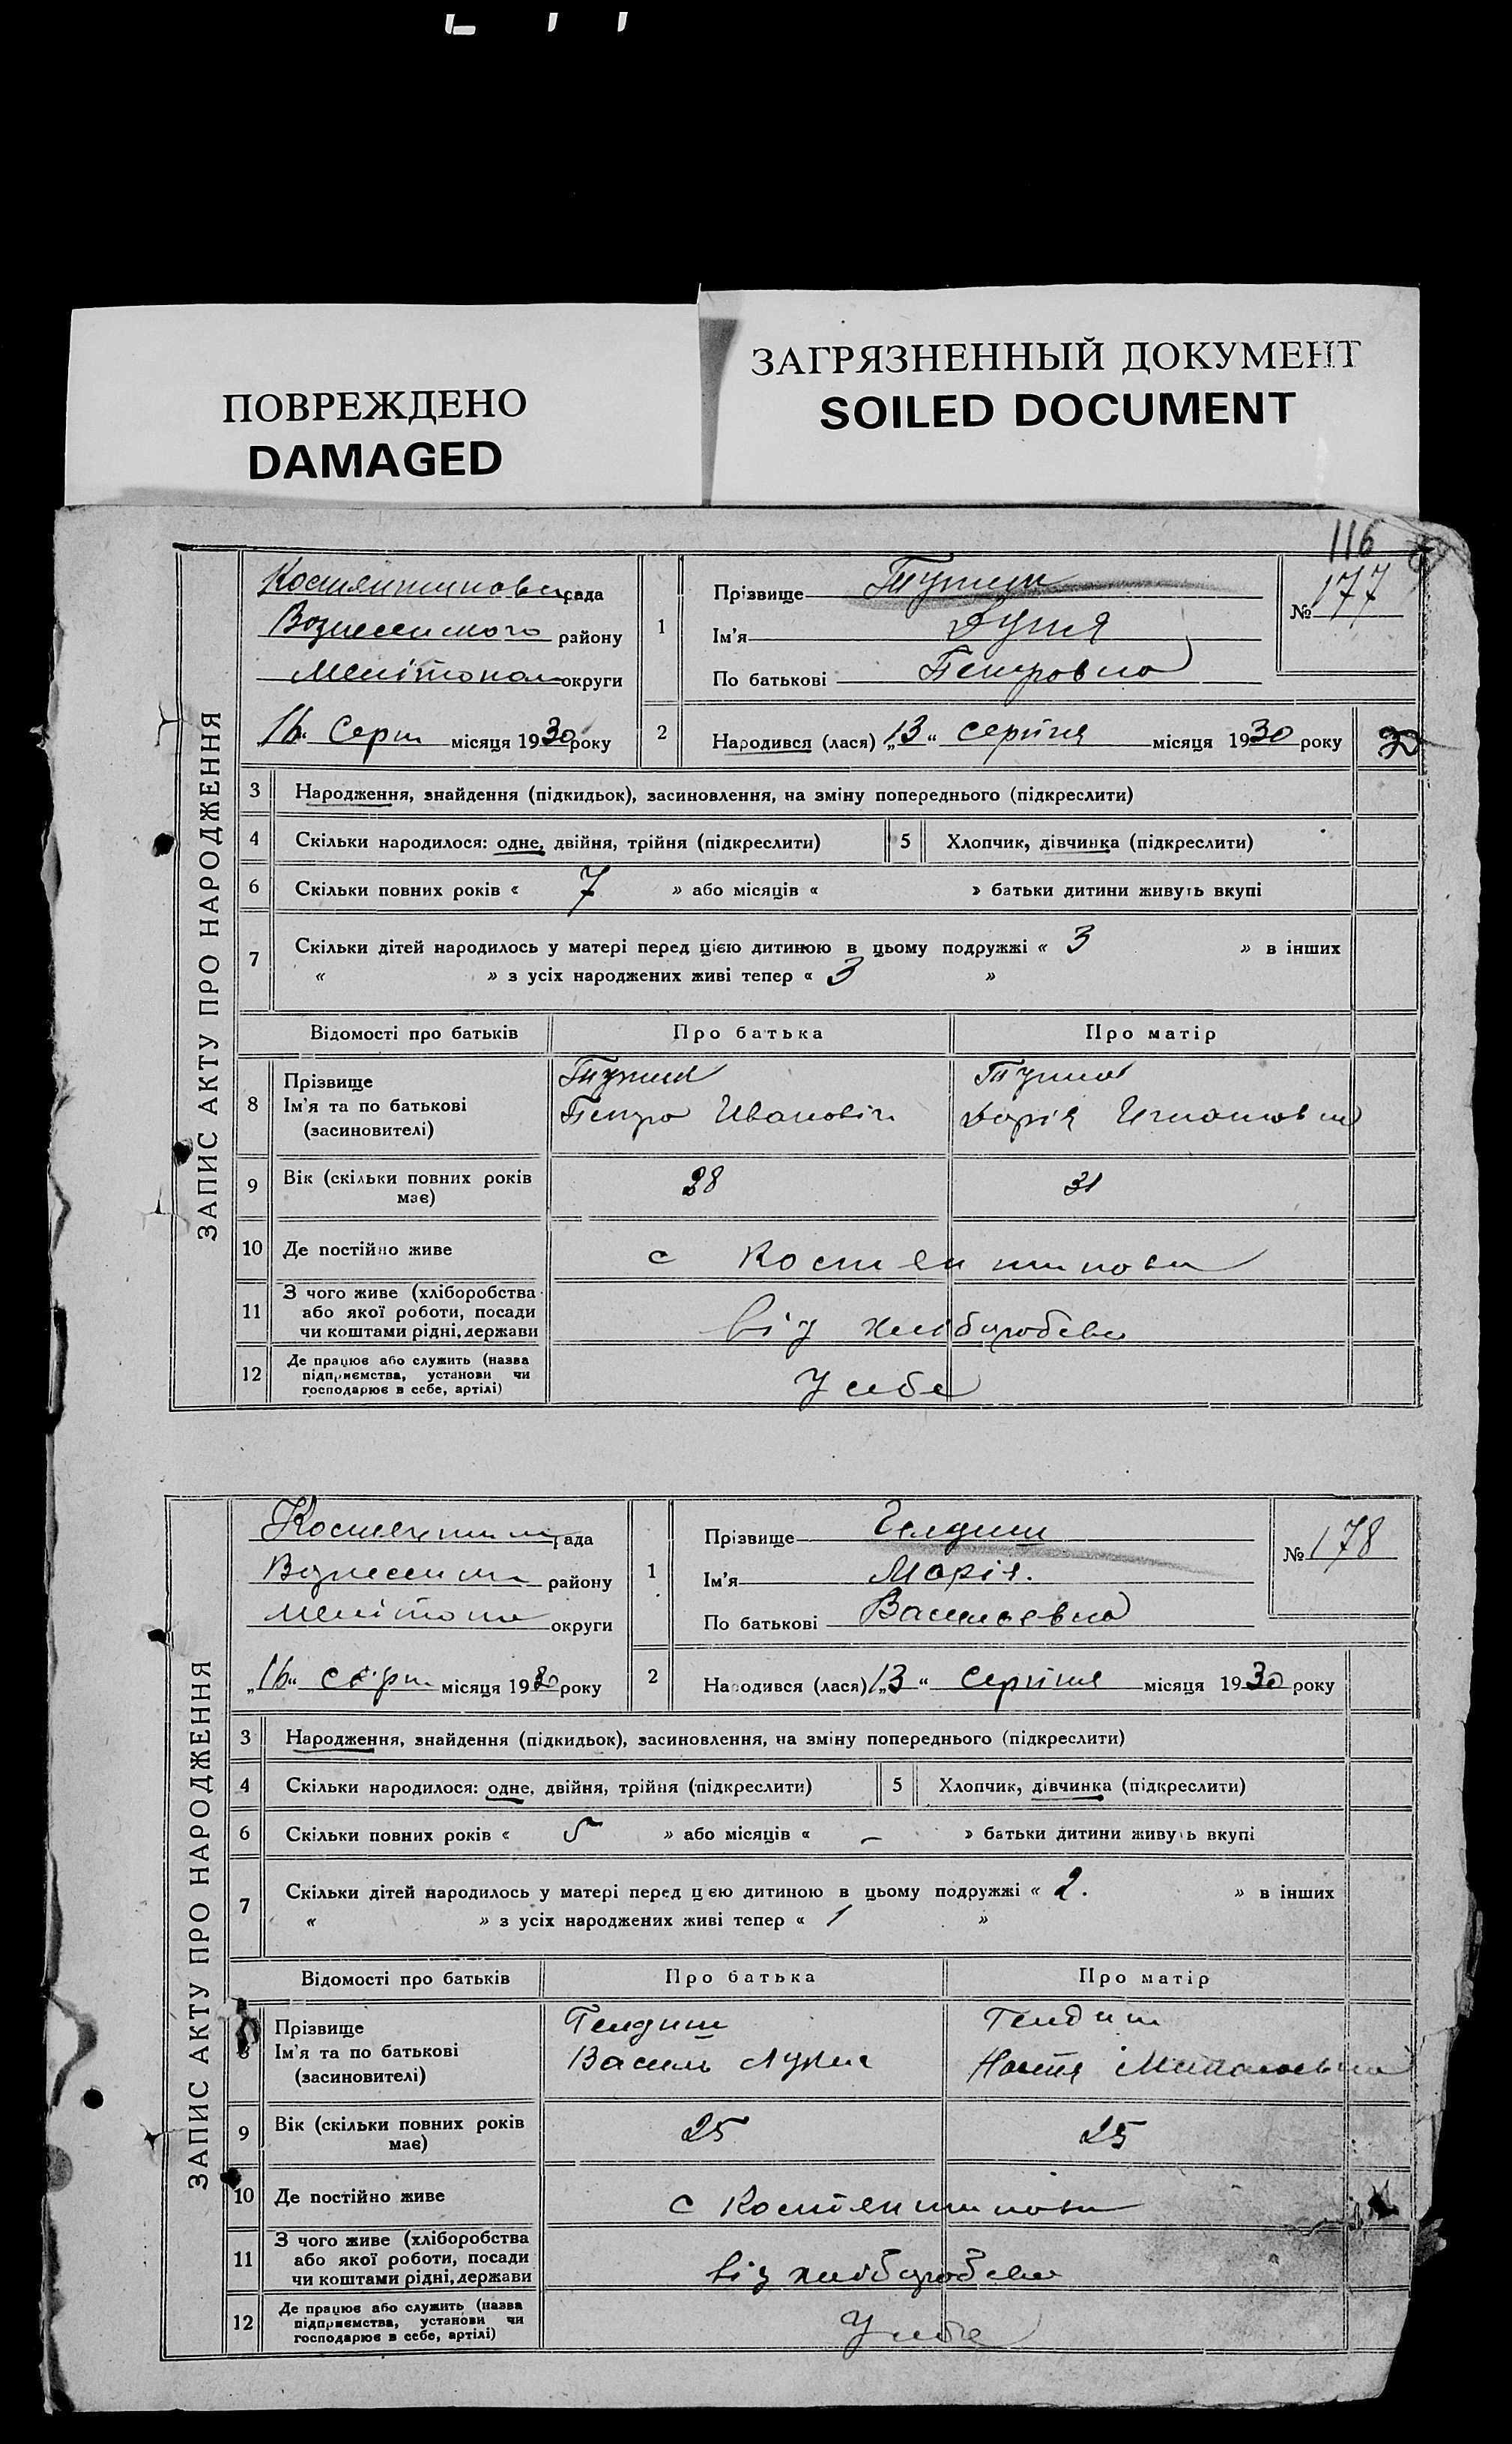 ПОВРЕЖДЕНО
DAMAGED
ЗАГРЯЗНЕННЫЙ ДОКУМЕНТ
SOILED DOCUMENT
116
ЗАПИС АКТУ ПРО НАРОДЖЕННЯ
рада
району
округи
16 Серп місяця 1930 року
1
Прізвище
Ім'я Дуня
По батькові Петровна
№ 177
2
Народився (лася) „13“ серпня місяця 1930 року
3 Народження, знайдення (підкидьок), засиновлення, на зміну попереднього (підкреслити)
4 Скільки народилося: одне, двійня, трійня (підкреслити) 5 Хлопчик, дівчинка (підкреслити)
6 Скільки повних років « 7 » або місяців « » батьки дитини живуть вкупі
7 Скільки дітей народилось у матері перед цією дитиною в цьому подружжі « 3 » в інших
« » з усіх народжених живі тепер « 3 »
Відомості про батьків Про батька Про матір
8 Прізвище
Ім'я та по батькові Петро Иванович Дарія
(засиновителі)
9 Вік (скільки повних років має) 31
10 Де постійно живе с
11 З чого живе (хліборобства або якої роботи, посади чи коштами рідні, держави від хліборобства
12 Де працює або служить (назва підприємства, установи чи господарює в себе, артілі) У себе
ЗАПИС АКТУ ПРО НАРОДЖЕННЯ
рада
району
округи
„16“ серп місяця 1930 року
1
Прізвище Гелдиш
Ім'я Марія.
По батькові Васильевна
№ 178
2
Народився (лася) „13“ серпня місяця 1930 року
3 Народження, знайдення (підкидьок), засиновлення, на зміну попереднього (підкреслити)
4 Скільки народилося: одне, двійня, трійня (підкреслити) 5 Хлопчик, дівчинка (підкреслити)
6 Скільки повних років « 5 » або місяців « – » батьки дитини живуть вкупі
7 Скільки дітей народилось у матері перед цією дитиною в цьому подружжі « 2. » в інших
« » з усіх народжених живі тепер « 1 »
Відомості про батьків Про батька Про матір
8 Прізвище Гелдиш Гелдиш
Ім'я та по батькові Василь Настя
(засиновителі)
9 Вік (скільки повних років має) 25 25
10 Де постійно живе с
11 З чого живе (хліборобства або якої роботи, посади чи коштами рідні, держави від хліборобства
12 Де працює або служить (назва підприємства, установи чи господарює в себе, артілі) У себе